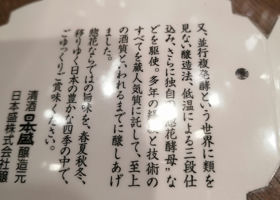 又、並行複醗酵という世界に類を
見ない醸造法、低温による三段仕
込み、さらに独自の「惣花酵母」な
どを駆使。多年の経験と技術の
すべてを蔵人気質に託して、至上
の酒質といわれるまでに醸しあげ
ました。
惣花ならではの旨味を、春夏秋冬、
移りゆく日本の豊かな四季の中で、
ごゆっくりご賞味ください。
清酒日本盛醸造元
日本盛株式会社醸